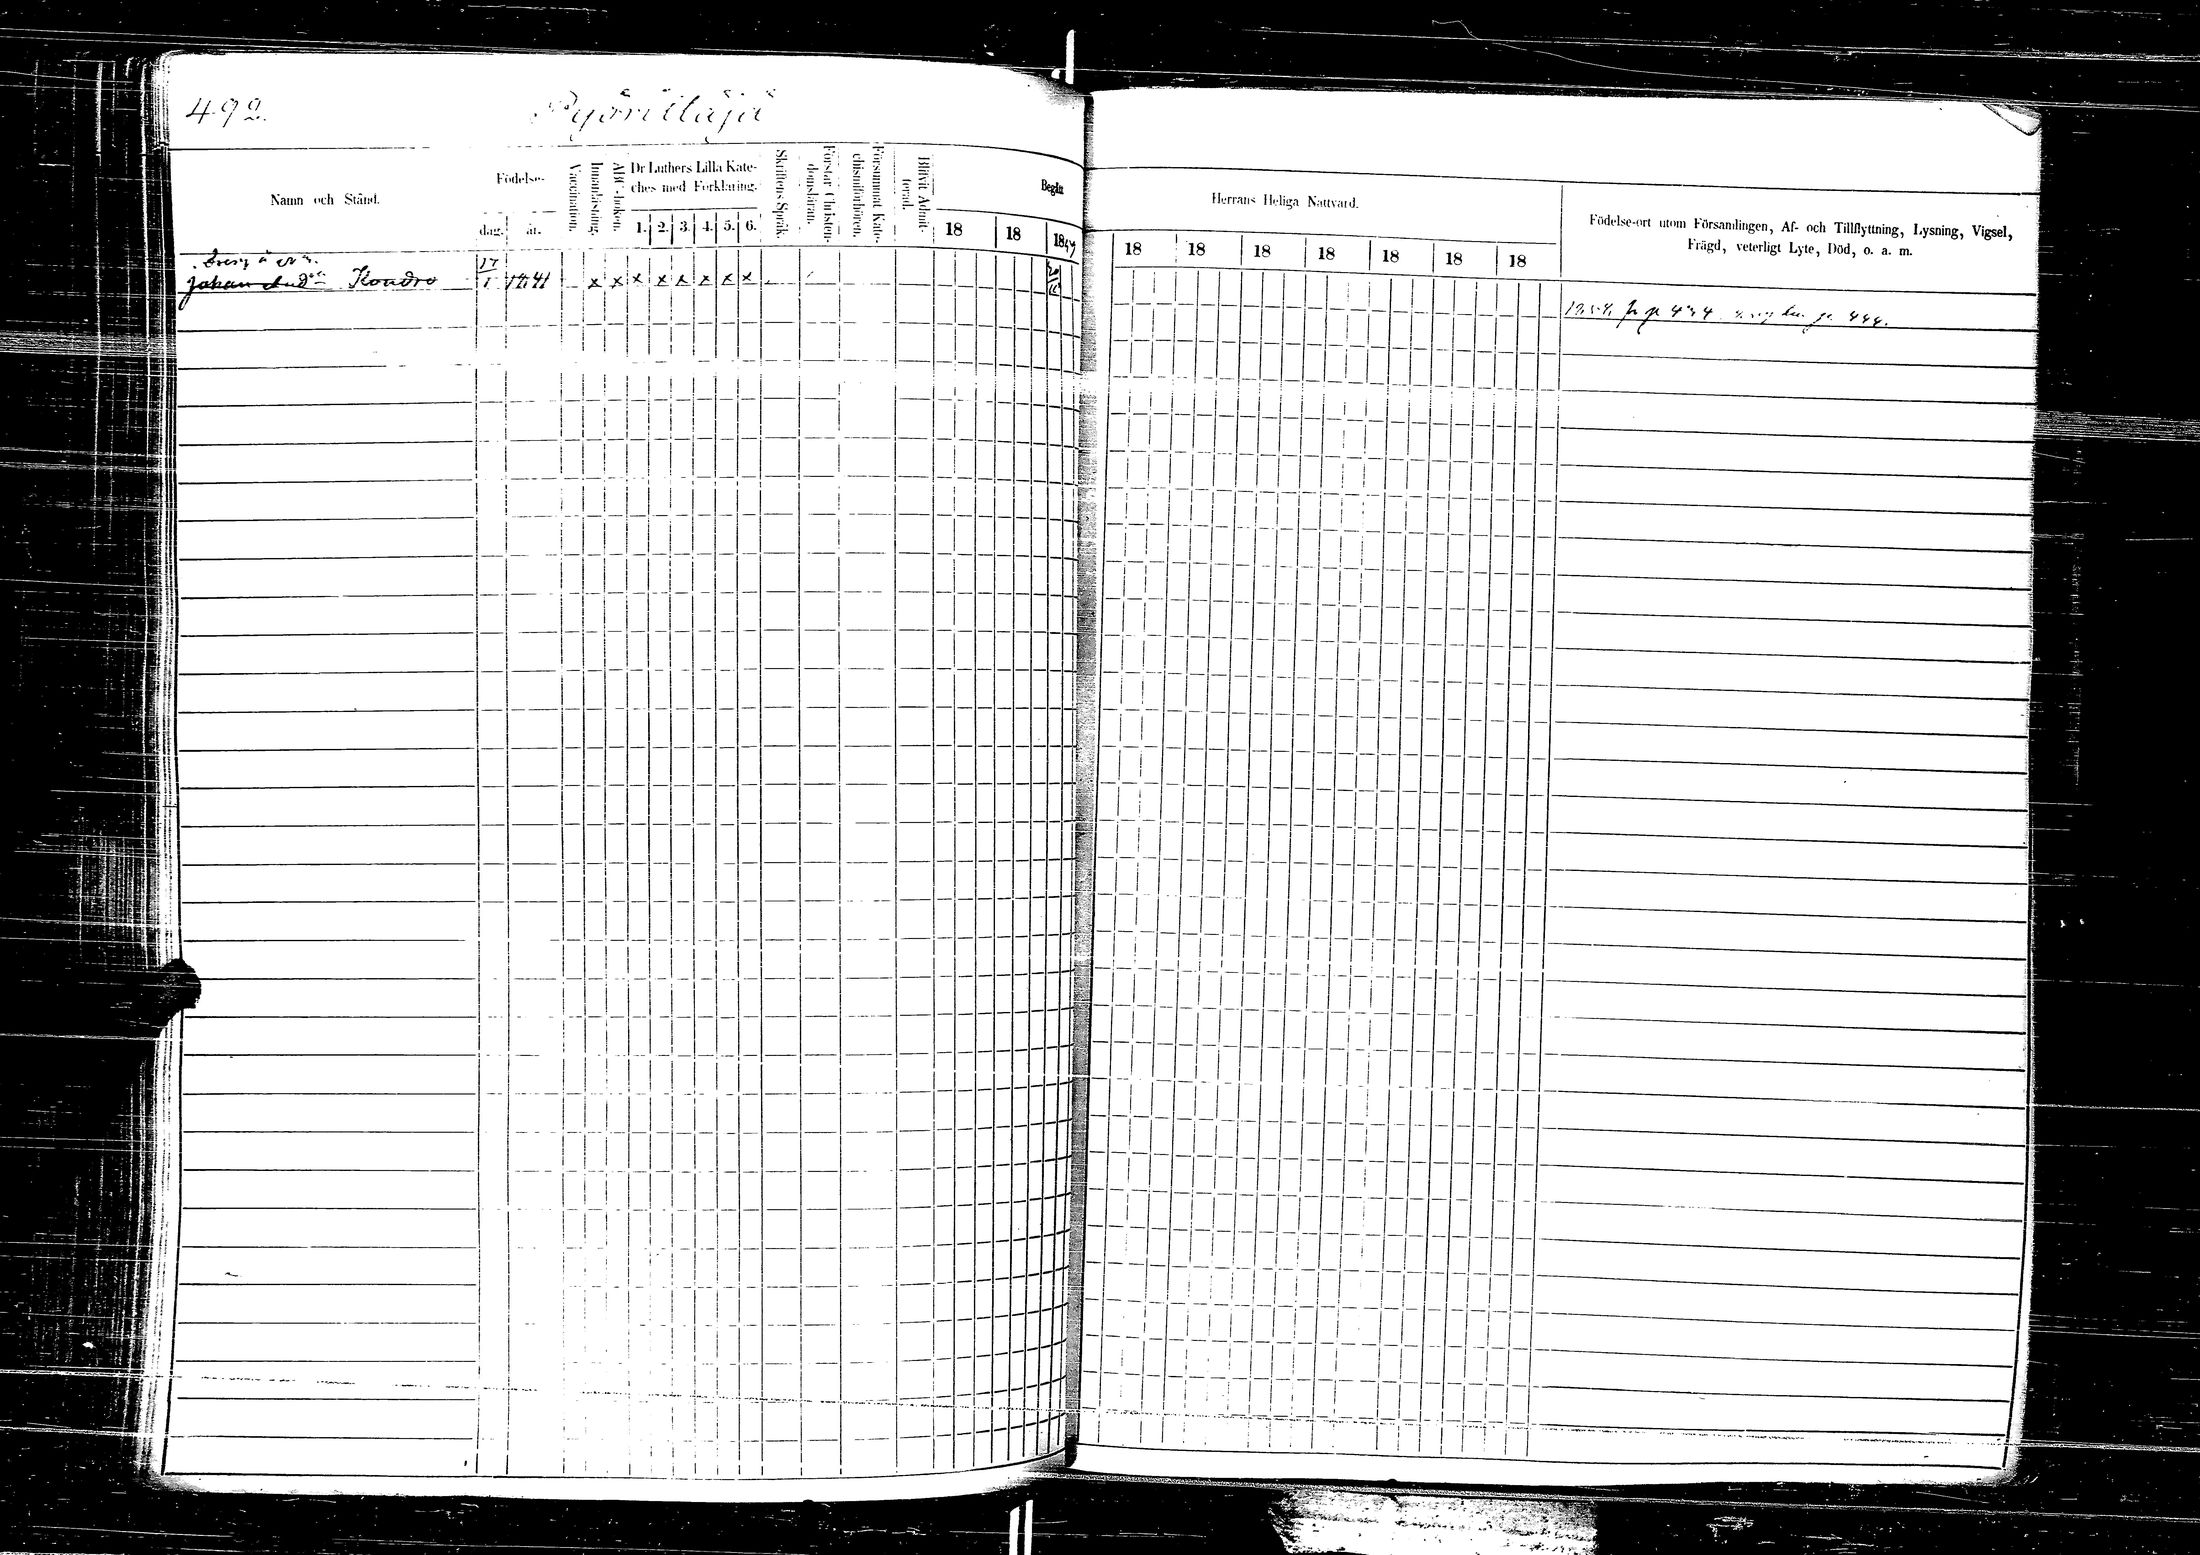 492.
Pyörittäjä
Namn och Stånd.
Födelse-
dag.
år.
Vaccination.
Innanläsning.
ABC-boken.
Dr Luthers Lilla Kate-
ches med Förklaring.
1. 2. 3. 4. 5. 6.
Skriftens Språk.
Förstår Christen-
domsläran.
Försummat Kate-
chismiförhören.
Blifvit Admit-
terad.
Begått
18 18 18
Herrans Heliga Nattvard.
18 18 18 18 18 18 18
Födelse-ort utom Församlingen, Af- och Tillflyttning, Lysning, Vigsel,
Frägd, veterligt Lyte, Död, o. a. m.
Johan And Kondro 17/1 1841 x x x x x x x x
444.